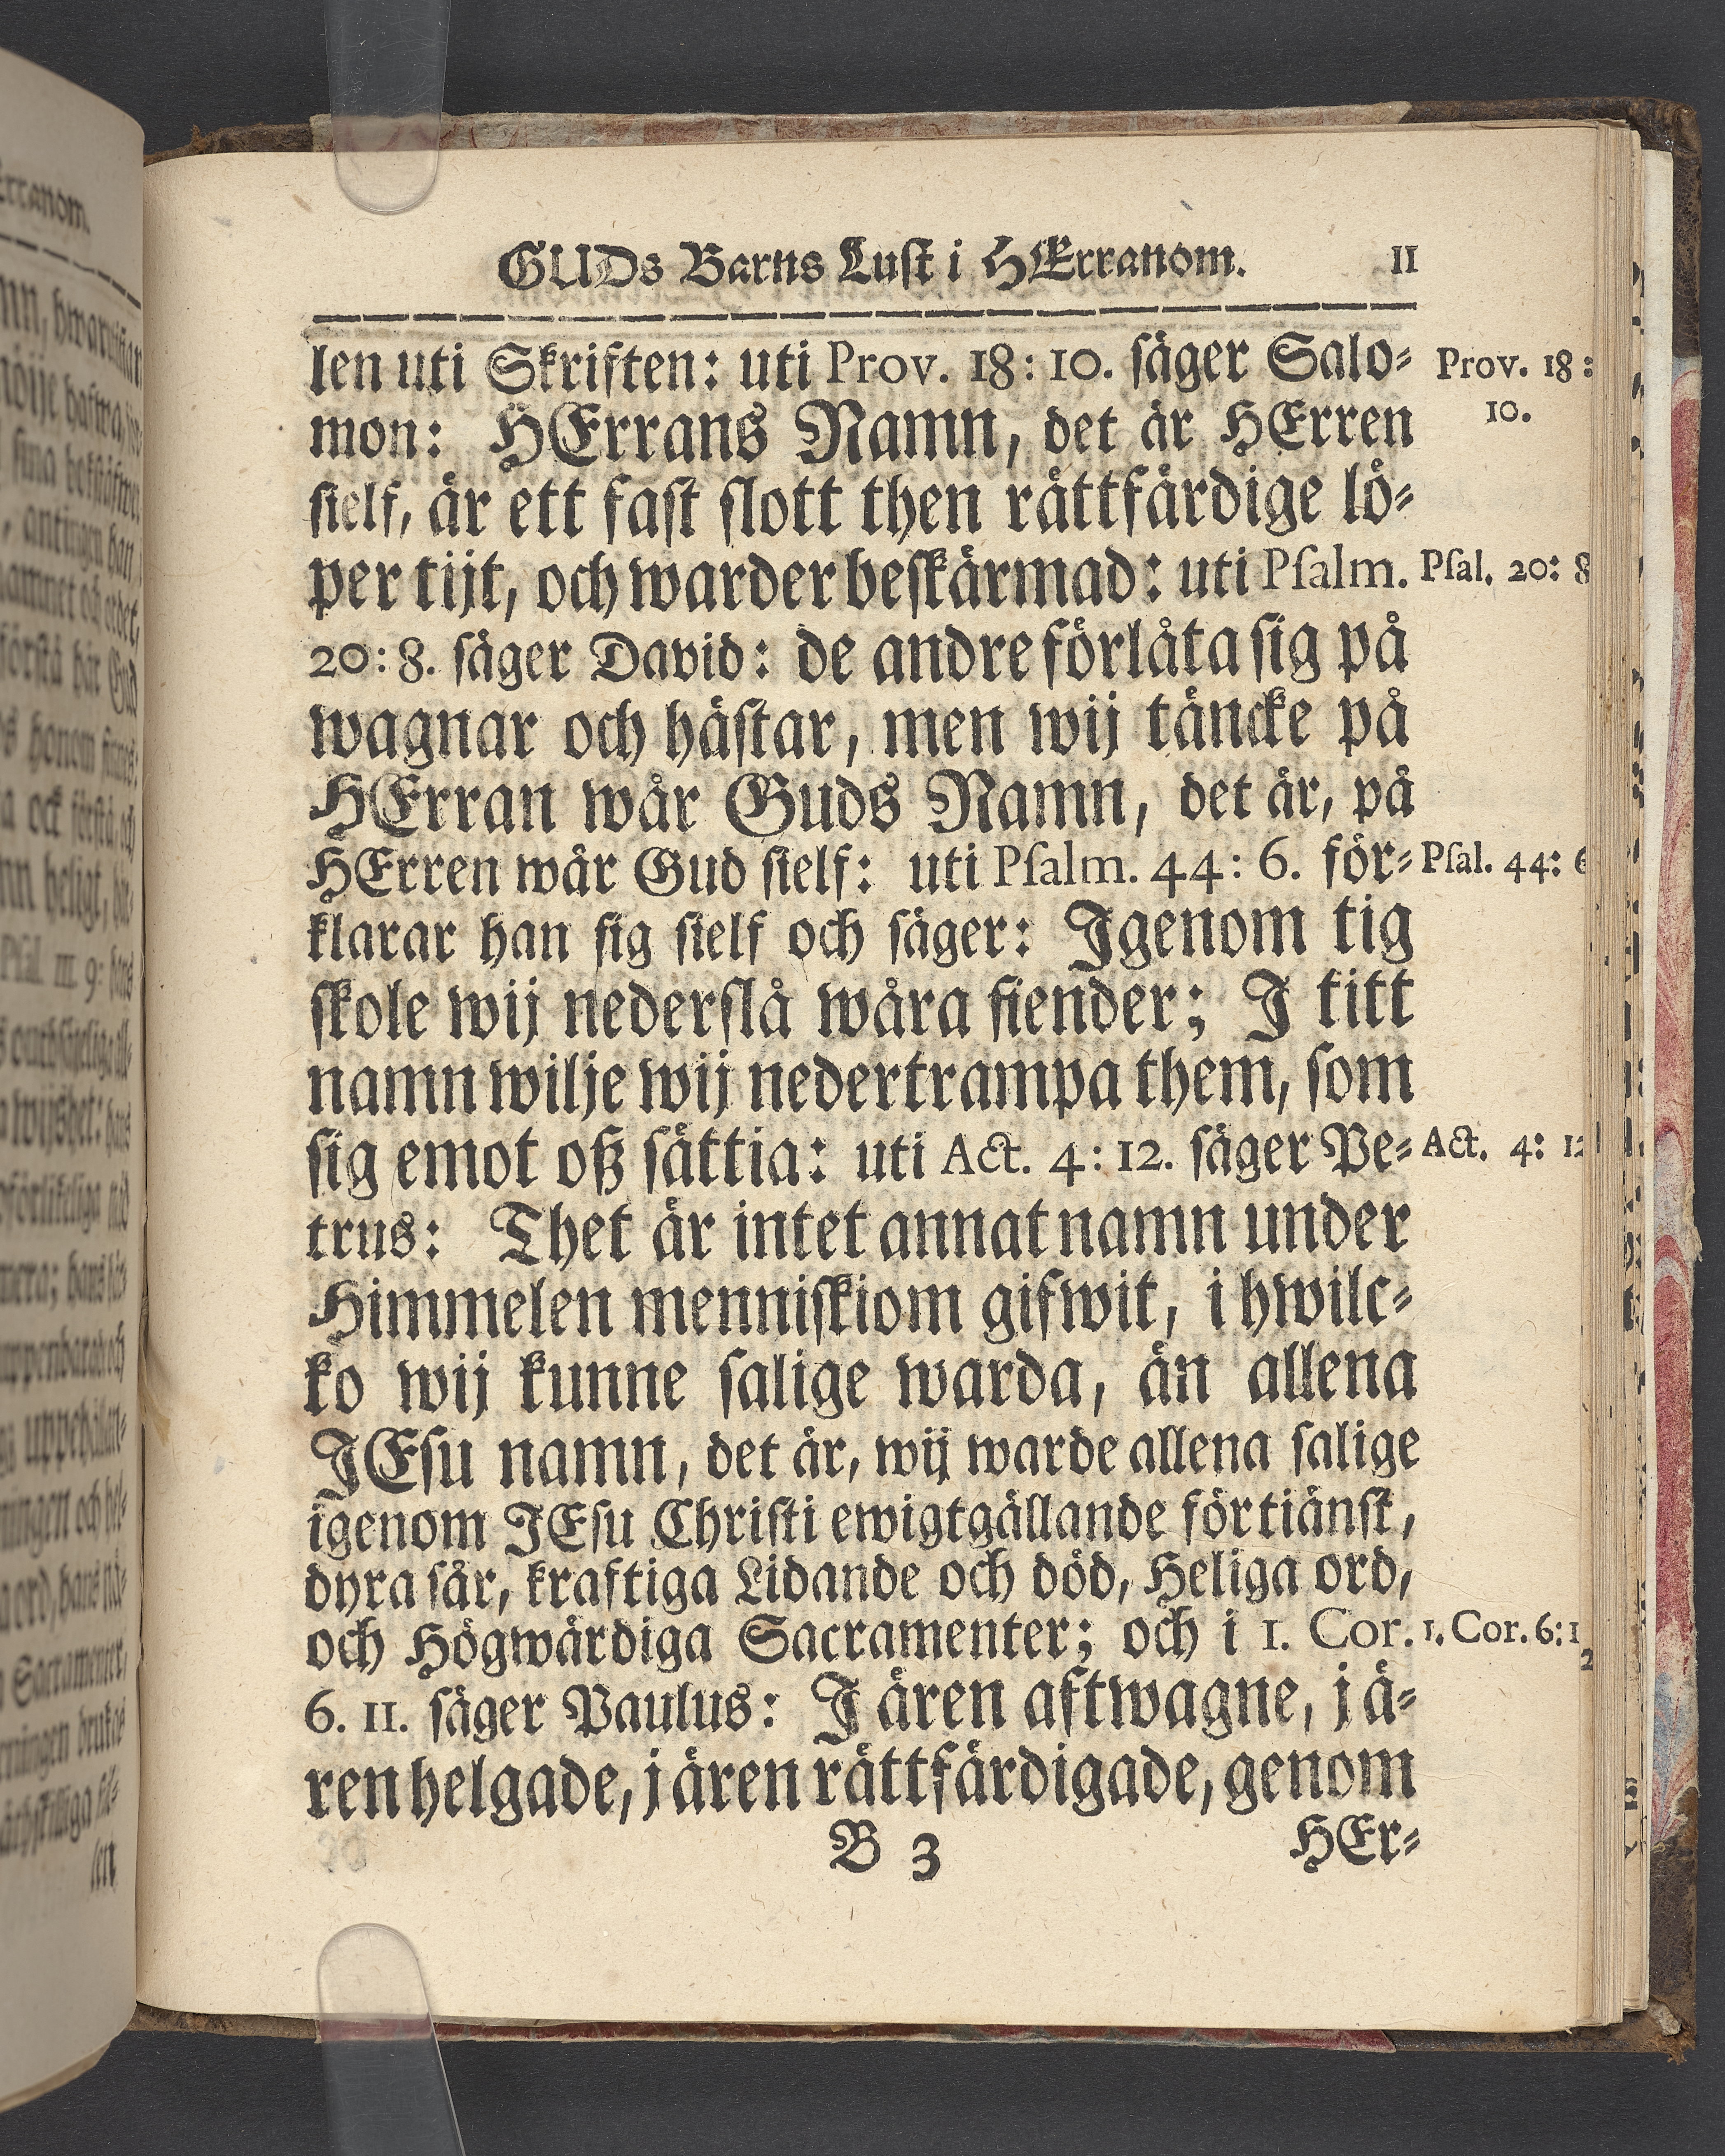 GUDs Barns Luſt i HErranom. 11
len uti Skriften: uti Prov. 18: 10. ſäger Salo⸗
Prov. 18:
10.
mon: HErrans Namn, det är HErren
ſielf, är ett faſt ſlott then rättfärdige lö⸗
per tijt, och warder beſkärmad: uti Pſalm.
Pſal. 20: 8
20: 8. ſäger David: de andre förlåta ſig på
wagnar och häſtar, men wij täncke på
HErran wår Guds Namn, det är, på
HErren wår Gud ſielf: uti Pſalm. 44: 6. för⸗
Pſal. 44: 6
klarar han ſig ſielf och ſäger: Igenom tig
ſkole wij nederſlå wåra fiender; I titt
namn wilje wij nedertrampa them, ſom
ſig emot oß ſättia: uti Act. 4: 12. ſäger Pe⸗
Act. 4: 12
trus: Thet är intet annat namn under
Himmelen menniſkiom gifwit, i hwilc⸗
ko wij kunne ſalige warda, än allena
JEſu namn, det är, wij warde allena ſalige
igenom JEſu Chriſti ewigtgällande förtiänſt,
dyra ſår, kraftiga Lidande och död, Heliga ord,
och Högwärdiga Sacramenter; och i 1. Cor.
1. Cor. 6: 1
6. 11. ſäger Paulus: I ären aftwagne, j ä⸗
ren helgade, j ären rättfärdigade, genom
B 3 HEr⸗